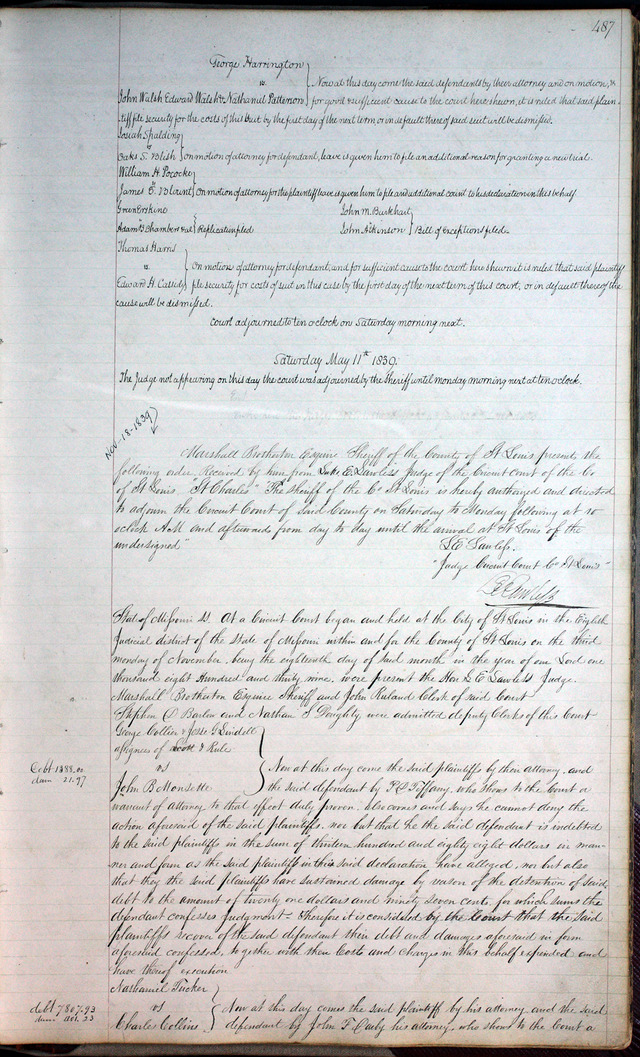 487
George Harrington
vs.
John Walsh Edward Walsh & Nathanil Patterson
Now at this day come the said defendants by their attorney and on motion, &
for good & sufficient cause to the court here shewn, it is ruled that said plain
tiff file security for the costs of this suit by the first day of the next term, or in default there of said suit will be dismissed.
Josiah Spalding
Oaks S. Blish
on motion of attorney for defendant, leave is given him to file an additional reason for granting a new trial.
William H. Pococke
vs
James E. Blaint
on motion of attorney for the plaintiff leave is given him to file and additional court to his declaration in this behalf
Green Erskine
vs
Adam B Chambers et al
Replication filed
John M. Burkhart
vs
John Atkinson
Bill of exceptions filed.
Thomas Harns
vs.
Edward H. Cassidy
On motion of attorney for defendant, and for sufficient cause to the court here shewn it is ruled that said plaintiff
file security for costs of suit in this case by the first day of the next term of this court, or in default there of the
cause will be dismissed.
Court adjourned to ten o clock on Saturday morning next.
Saturday May 11th 1839.
The Judge not appearing on this day the court was adjourned by the Sheriff until monday morning next at ten oclock.
Nov-18-1839
Marshall Brotherton Esquire Sheriff of the County of St Louis presents the
following order, Received by him from Luke E. Lawless Judge of the Circuit Court of the Co
of St Louis, "St Charles" The sheriff of the Co St Louis is hereby authorized and directed
to adjourn the Circuit Court of said County on Saturday to Monday following at 10
oclock AM and afterwards from day to day until the arrival at St Louis of the
undersigned"
L E Lawless.
"Judge Circuit Court Co St Louis"
L E Lawless
State of Missouri ss. At a Circuit Court began and held at the City of St Louis in the Eighth
Judicial district of the State of Missouri within and for the County of St Louis on the third
monday of November, being the eighteenth day of said month in the year of our Lord one
thousand eight Hundred and thirty nine. were present the Hon L E Lawless Judge.
Marshall Brotherton Esquire Sheriff and John Ruland Clerk of said Court
Stephen D Barlow and Nathan S Doughty, were admitted deputy Clerks of this Court
George Collier & Jesse G Lindell
assignees of Scott & Rule
vs
John B Monsette
Debt 1388.00
dam 21.97
Now at this day come the said plaintiffs by their attorney, and
the said defendant by P Tiffany, who shows to the Court a
warrant of attorney to that effect duly proven, also comes and says he cannot deny the
action aforesaid of the said plaintiffs, nor but that he the said defendant is indebted
to the said plaintiffs in the sum of thirteen hundred and eighty eight dollars in man-
ner and form as the said plaintiffs in this said declaration have alleged, nor but also
that they the said plaintiffs have sustained damage by reason of the detention of said
debt to the amount of twenty one dollars and ninety seven cents, for which sums the
defendant confesses Judgment. Therefore it is considered by the Court that the said
plaintiffs recover of the said defendant their debt and damages aforesaid in form
aforesaid confessed, together with their Costs and charges in this behalf expended and
have thereof execution
Nathaniel Tucker
vs
Charles Collins
debt 7807.93
dam 23
Now at this day comes the said plaintiff by his attorney, and the said
defendant by John F. Darby his attorney, who shows to the Court a